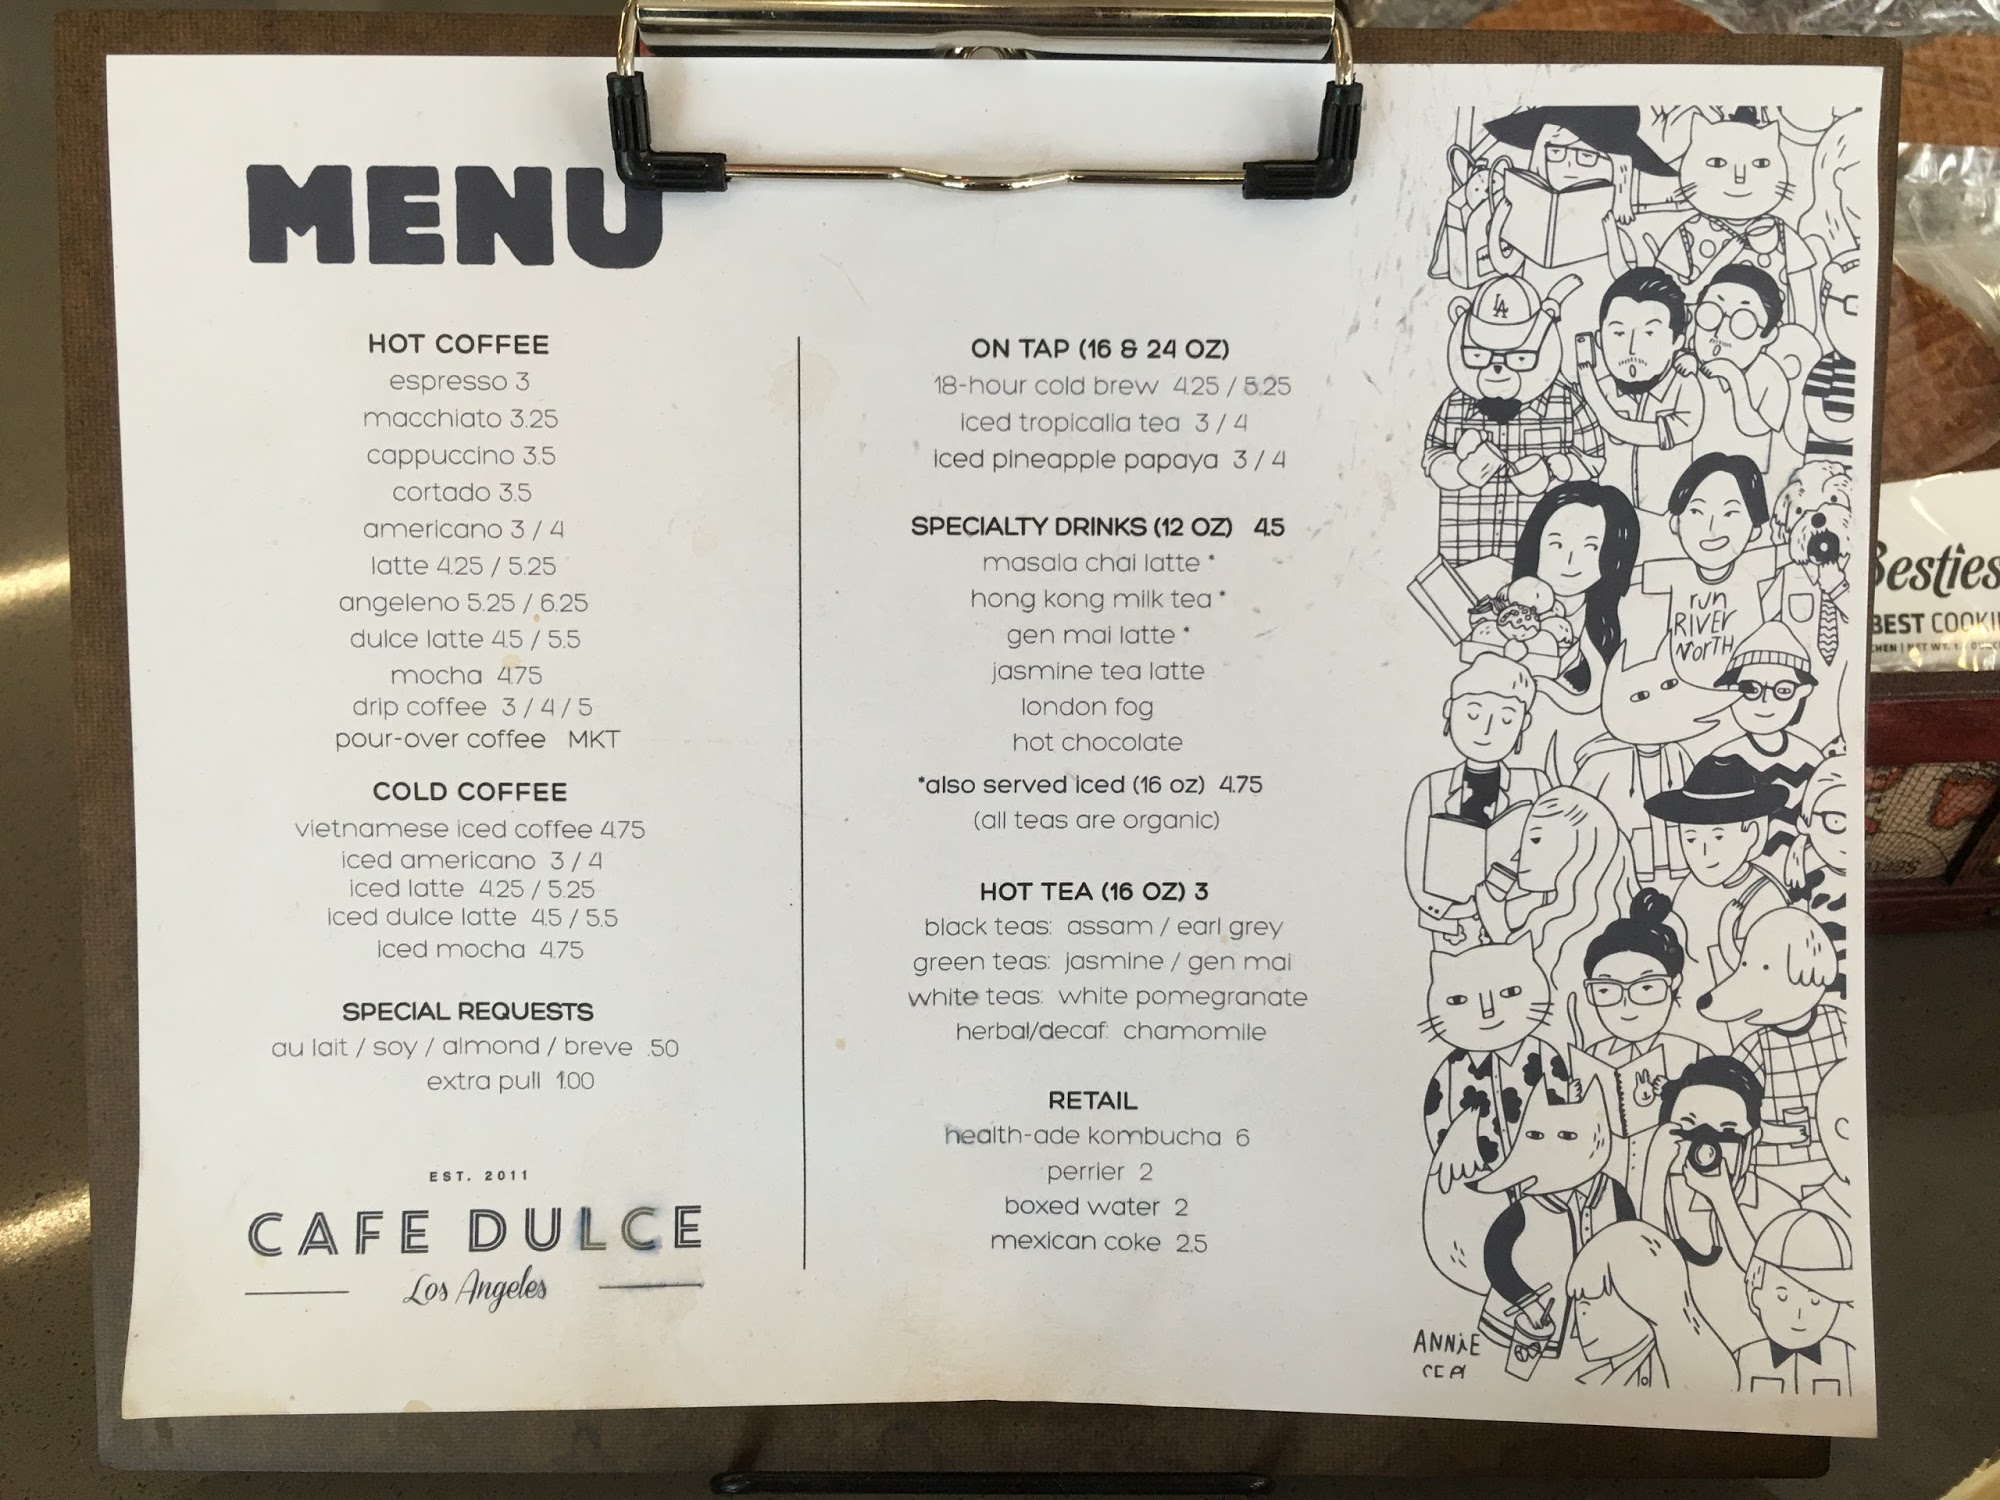 MENU
HOT COFFEE
espresso 3
macchiato 3.25
cappuccino 3.5
cortado 3.5
americano 3 / 4
latte 4.25 / 5.25
angeleno 5.25 / 6.25
dulce latte 4.5 / 5.5
mocha 4.75
drip coffee 3 / 4 / 5
pour-over coffee MKT
COLD COFFEE
vietnamese iced coffee 4.75
iced americano 3 / 4
iced latte 4.25 / 5.25
iced dulce latte 4.5 / 5.5
iced mocha 4.75
SPECIAL REQUESTS
au lait / soy / almond / breve .50
extra pull 1.00
EST. 2011
CAFE DULCE
Los Angeles
ON TAP (16 & 24 OZ)
18-hour cold brew 4.25 / 5.25
iced tropicalia tea 3 / 4
iced pineapple papaya 3 / 4
SPECIALTY DRINKS (12 OZ) 4.5
masala chai latte *
hong kong milk tea *
gen mai latte *
jasmine tea latte
london fog
hot chocolate
*also served iced (16 oz) 4.75
(all teas are organic)
HOT TEA (16 OZ) 3
black teas: assam / earl grey
green teas: jasmine / gen mai
white teas: white pomegranate
herbal/decaf: chamomile
RETAIL
health-ade kombucha 6
perrier 2
boxed water 2
mexican coke 2.5
LA
run
RIVER
NORTH
ANNiE
Besties
BEST
NET WT.